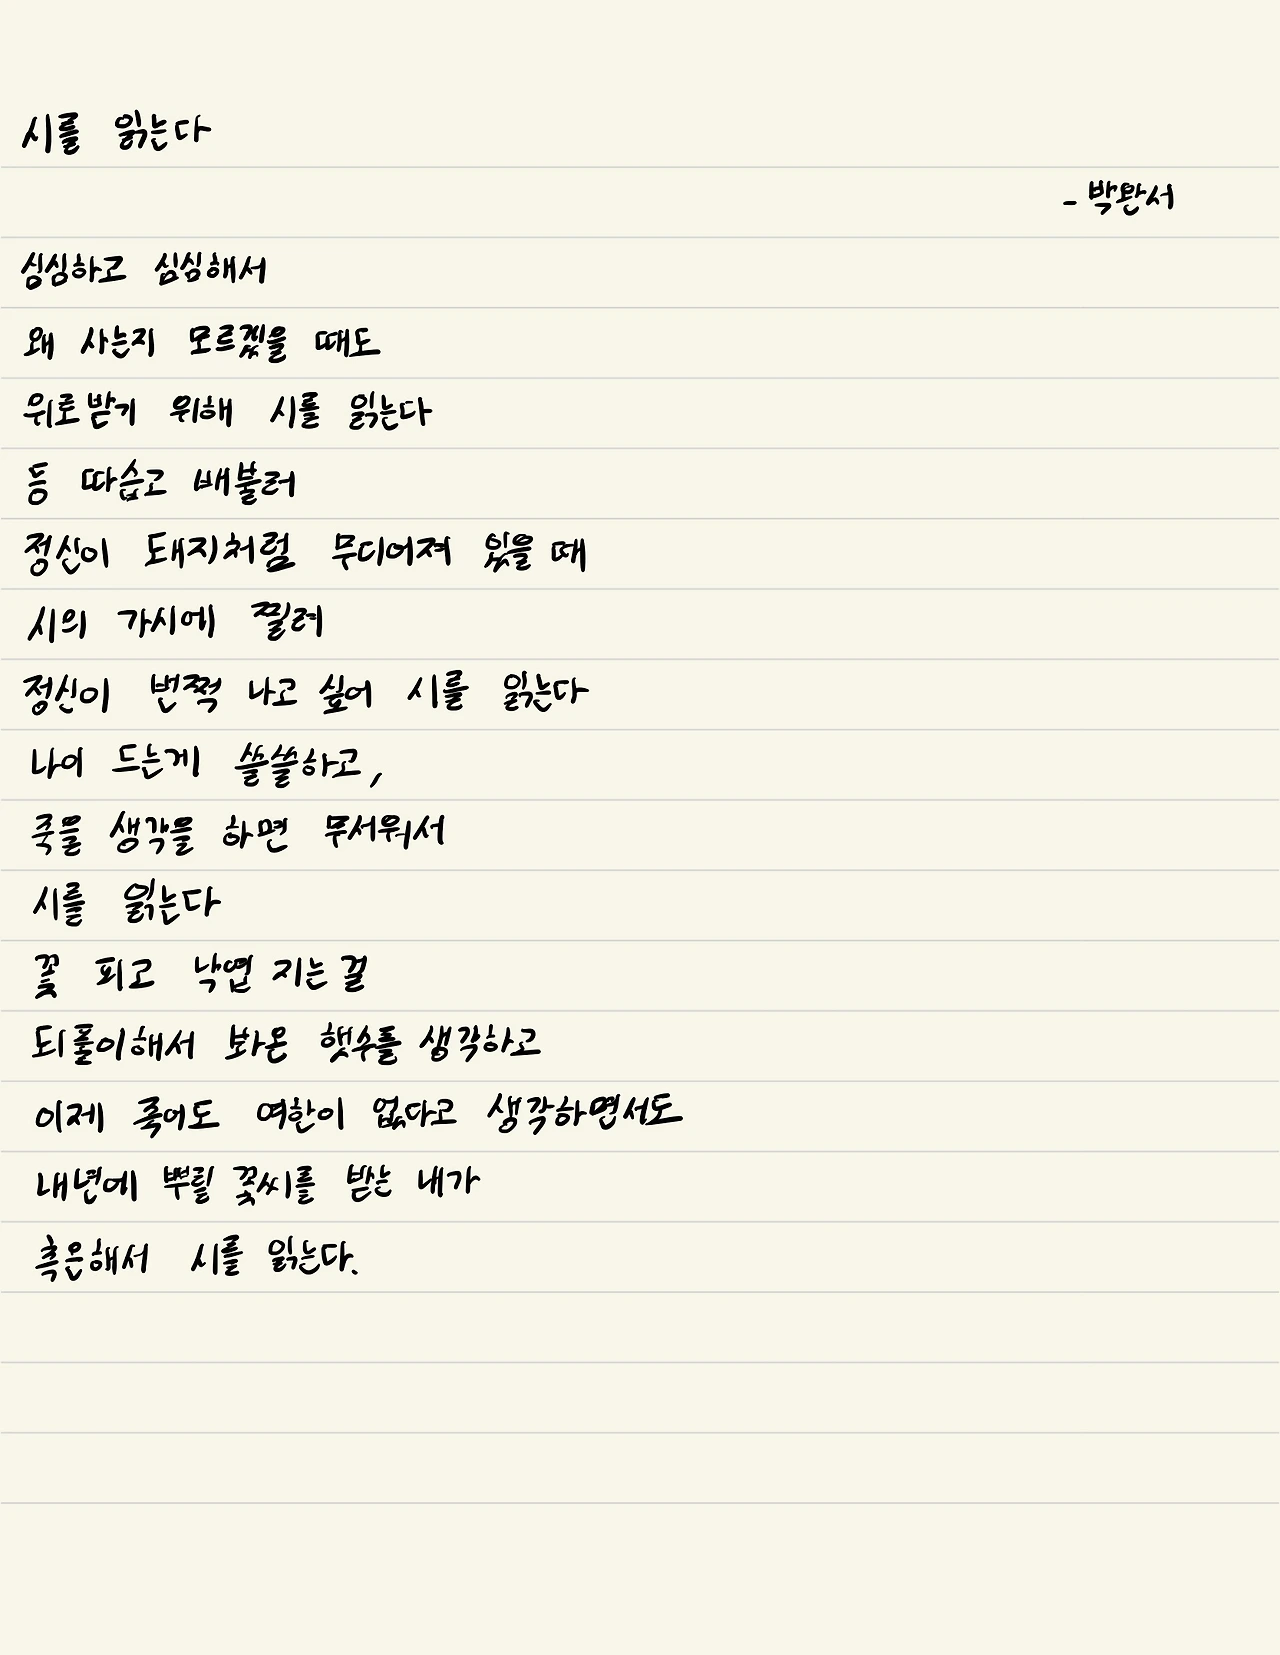 시를 읽는다
- 박완서
심심하고 심심해서
왜 사는지 모르겠을 때도
위로받기 위해 시를 읽는다
등 따습고 배불러
정신이 돼지처럼 무디어져 있을 때
시의 가시에 찔려
정신이 번쩍 나고 싶어 시를 읽는다
나이 드는게 쓸쓸하고,
죽을 생각을 하면 무서워서
시를 읽는다
꽃 피고 낙엽 지는 걸
되풀이해서 봐온 햇수를 생각하고
이제 죽어도 여한이 없다고 생각하면서도
내년에 뿌릴 꽃씨를 받는 내가
측은해서 시를 읽는다.